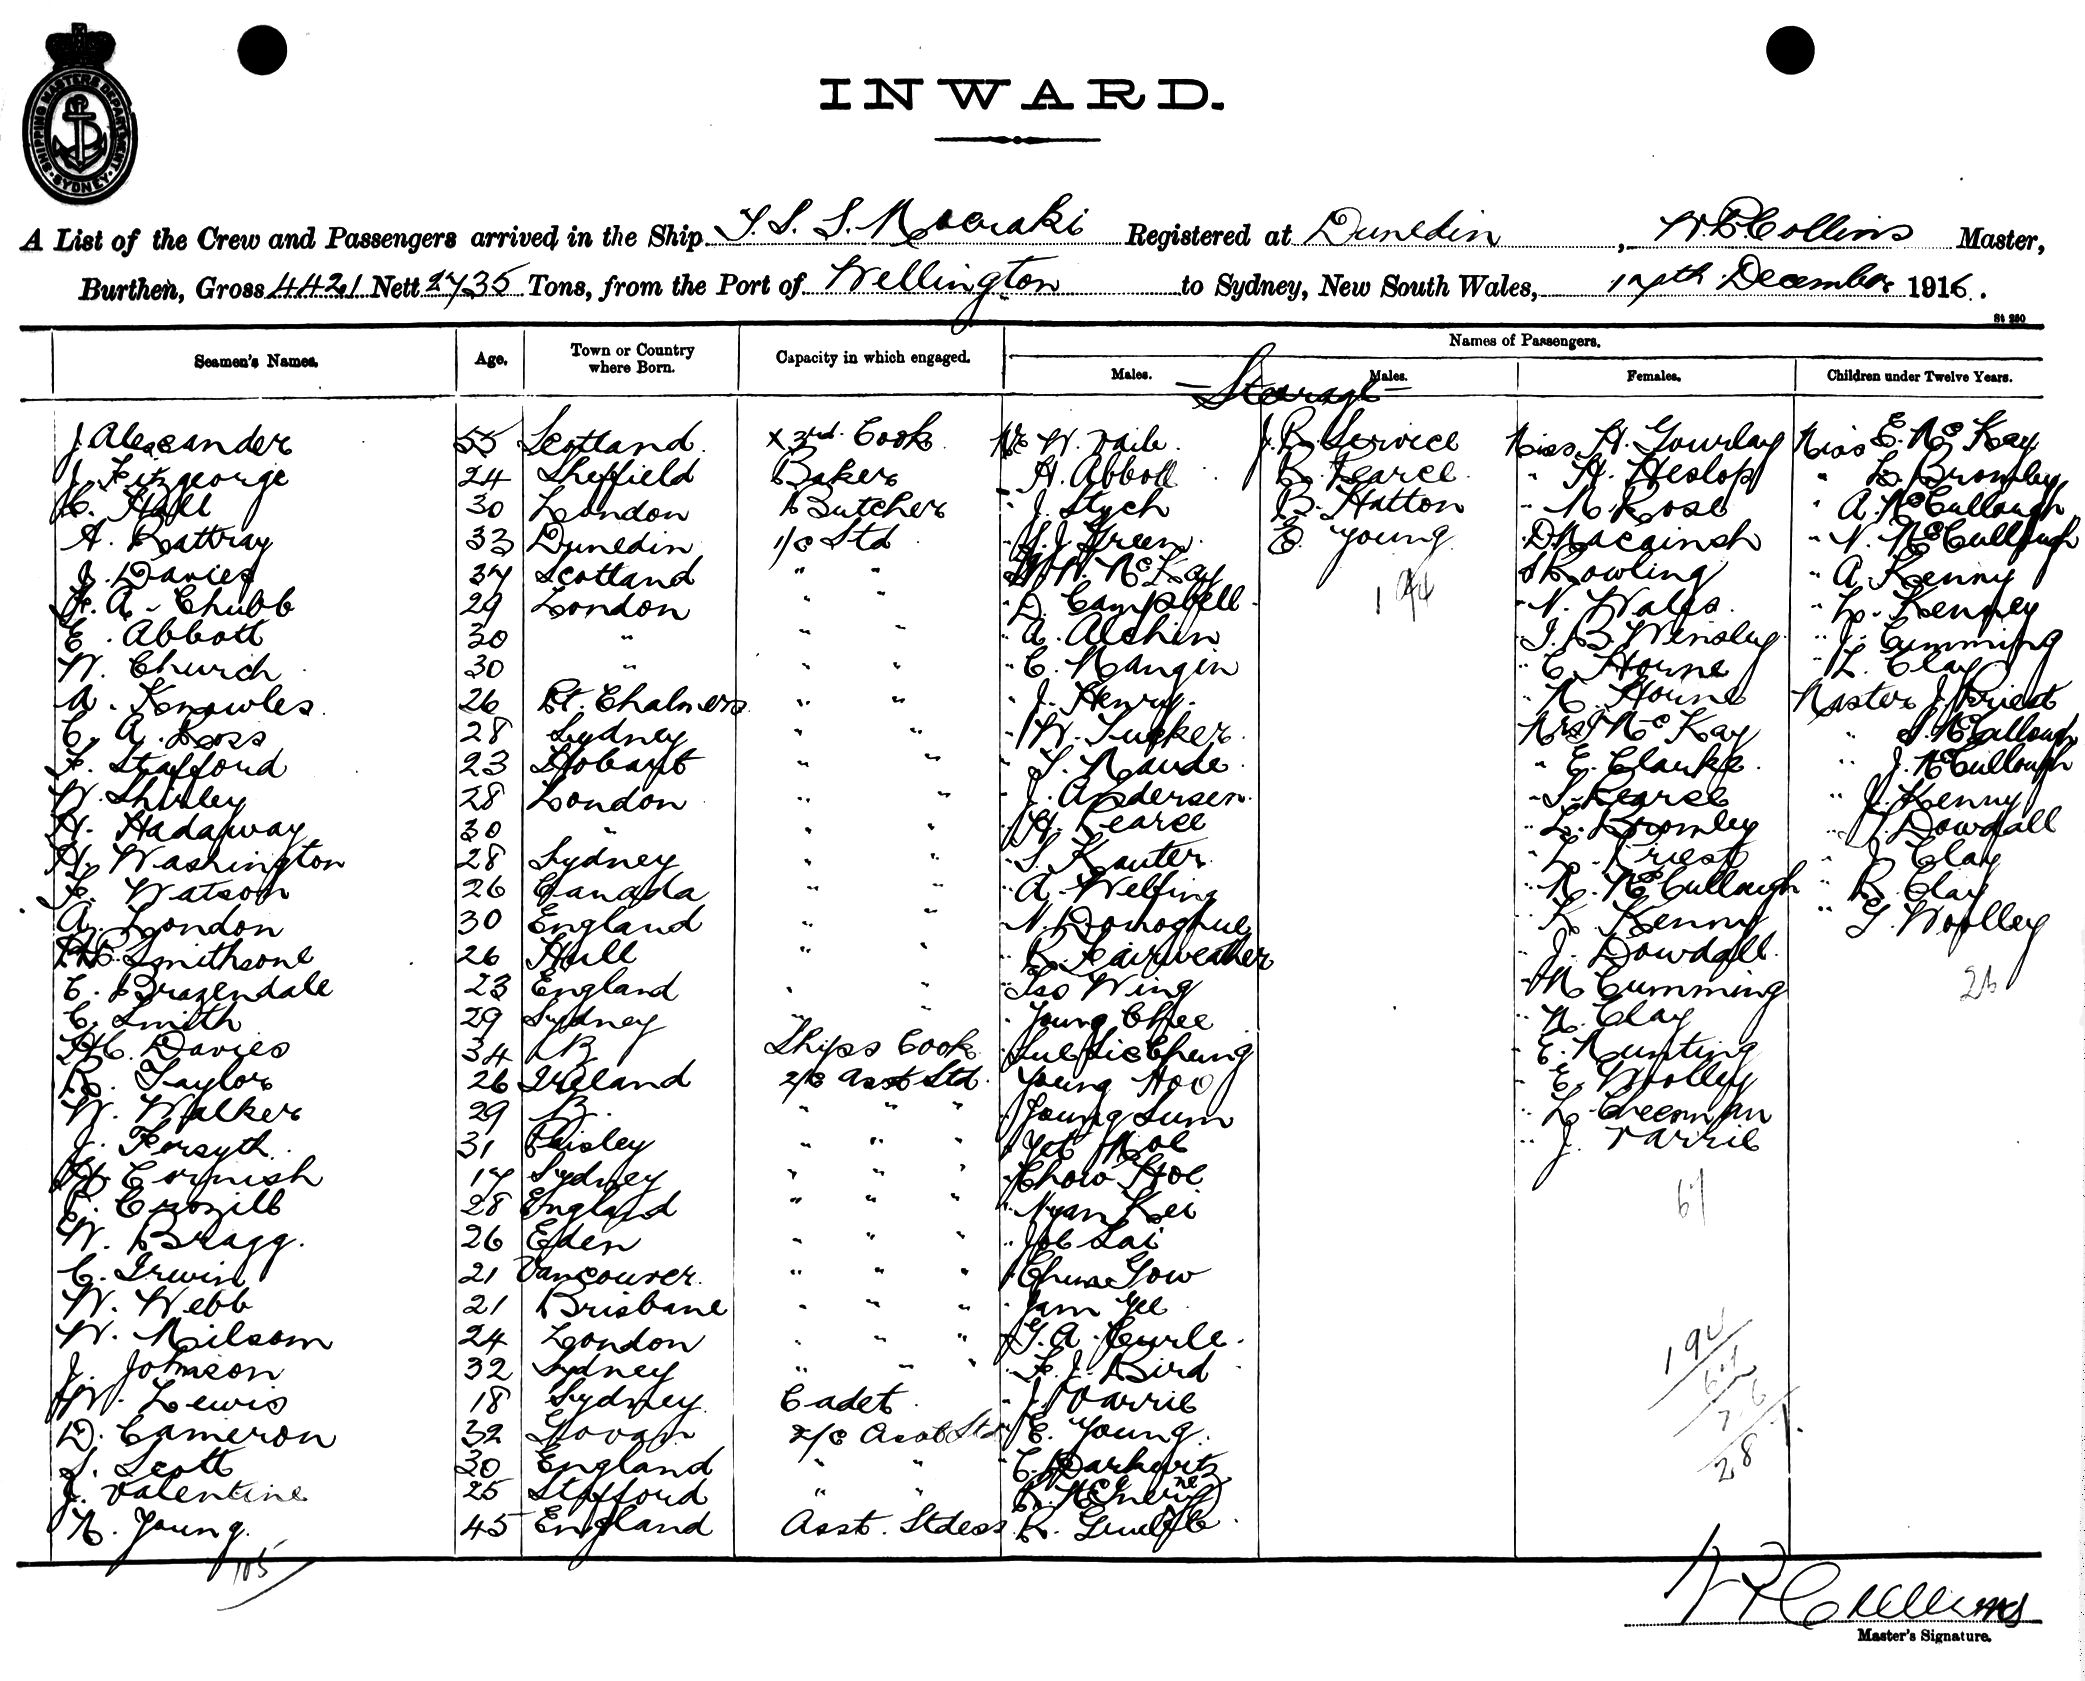 SHIPPING MASTERS DEPARTMENT · SYDNEY ·
INWARD.
A List of the Crew and Passengers arrived in the Ship T. S. S. Moeraki Registered at Dunedin, W. B. Collins Master,
Burthen, Gross 4421 Nett 2735 Tons, from the Port of Wellington to Sydney, New South Wales, 17th December 1916.
St 250
Seamen's Names. Age. Town or Country where Born. Capacity in which engaged. Names of Passengers.
Males. Males. Females. Children under Twelve Years.
— Steerage —
J. Alexander 55 Scotland x 3rd. Cook Mr W. Vaile J. R. Service Miss H. Gourlay Miss E. McKay
J. Fitzgeorge 24 Sheffield Baker " H. Abbott R. Pearce " H. Heslop " L. Bromley
C. Hall 30 London Butcher " J. Stych B. Hatton " M. Rose " A. McCullough
A. Rattray 33 Dunedin 1/c Std " S. J. Green E. Young " D Macainsh " N. McCullough
J. Davies 37 Scotland " " " McKay " Rowling " A. Kenny
F. A. Chubb 29 London " " " D. Campbell 194 " N. Wales " L. Kenney
E. Abbott 30 " " " " A. Alchin " I. B. Winsley " J. Cumming
W. Church 30 " " " " C. Mangin " C. Horne " L. Clay
A. Knowles 26 Pt. Chalmers " " " J. Henry " M. Horne Master J. Priest
C. A. Ross 28 Sydney " " " W. Tucker Mrs J McKay " S. McCullough
F. Stafford 23 Hobart " " " T. Maude " E. Clarke " J. McCullough
W. Shirley 28 London " " " J. Andersen " S. Pearce " J. Kenny
H. Hadaway 30 " " " " H. Pearce " L. Bromley " J. Dowdall
H. Washington 28 Sydney " " " S. Kauter " L. Priest " J. Clay
F. Watson 26 Canada " " " A. Welfing " M. McCullough " R. Clay
A. London 30 England " " " N. Donoghue " K. Kenny " G. Woolley
Smithsone 26 Hull " " " R. Fairweather " J. Dowdall
C. Brazendale 23 England " " " Tso Wing " M Cumming 26
C. Smith 29 Sydney " " " Young Chee " N. Clay
H. C. Davies 34 B Ships Cook " Sue Sic Chung " E. Nunting
R. Taylor 26 Ireland 2/c Asst Std. " Young Hoo " E. Woolley
W. Walker 29 B. " " " " Young Sum " L. Cheeseman
J. Forsyth 31 Paisley " " " " Yet Moe " J. Varrie
H. Cornish 17 Sydney " " " " Chow Hoe
Crozill 28 England " " " " Nyan Kei 67
W. Bragg. 26 Eden " " " " Joe Lai
C. Irwin 21 Vancouver. " " " " Gow
W. Webb 21 Brisbane " " " " Yam Yee
W. Milsom 24 London " " " " G. A. Curle 194
J. Johnson 32 Sydney " " " " F. J. Bird 67
W. Lewis 18 Sydney Cadet " J. Varrie 26
D. Cameron 32 Govan 2/c Asst Std " E. Young 287
S. Scott 30 England " " "
J. Valentine 25 Stafford " "
N. Young. 45 England Asst. Stdess R.
105
W B Collins
Master's Signature.